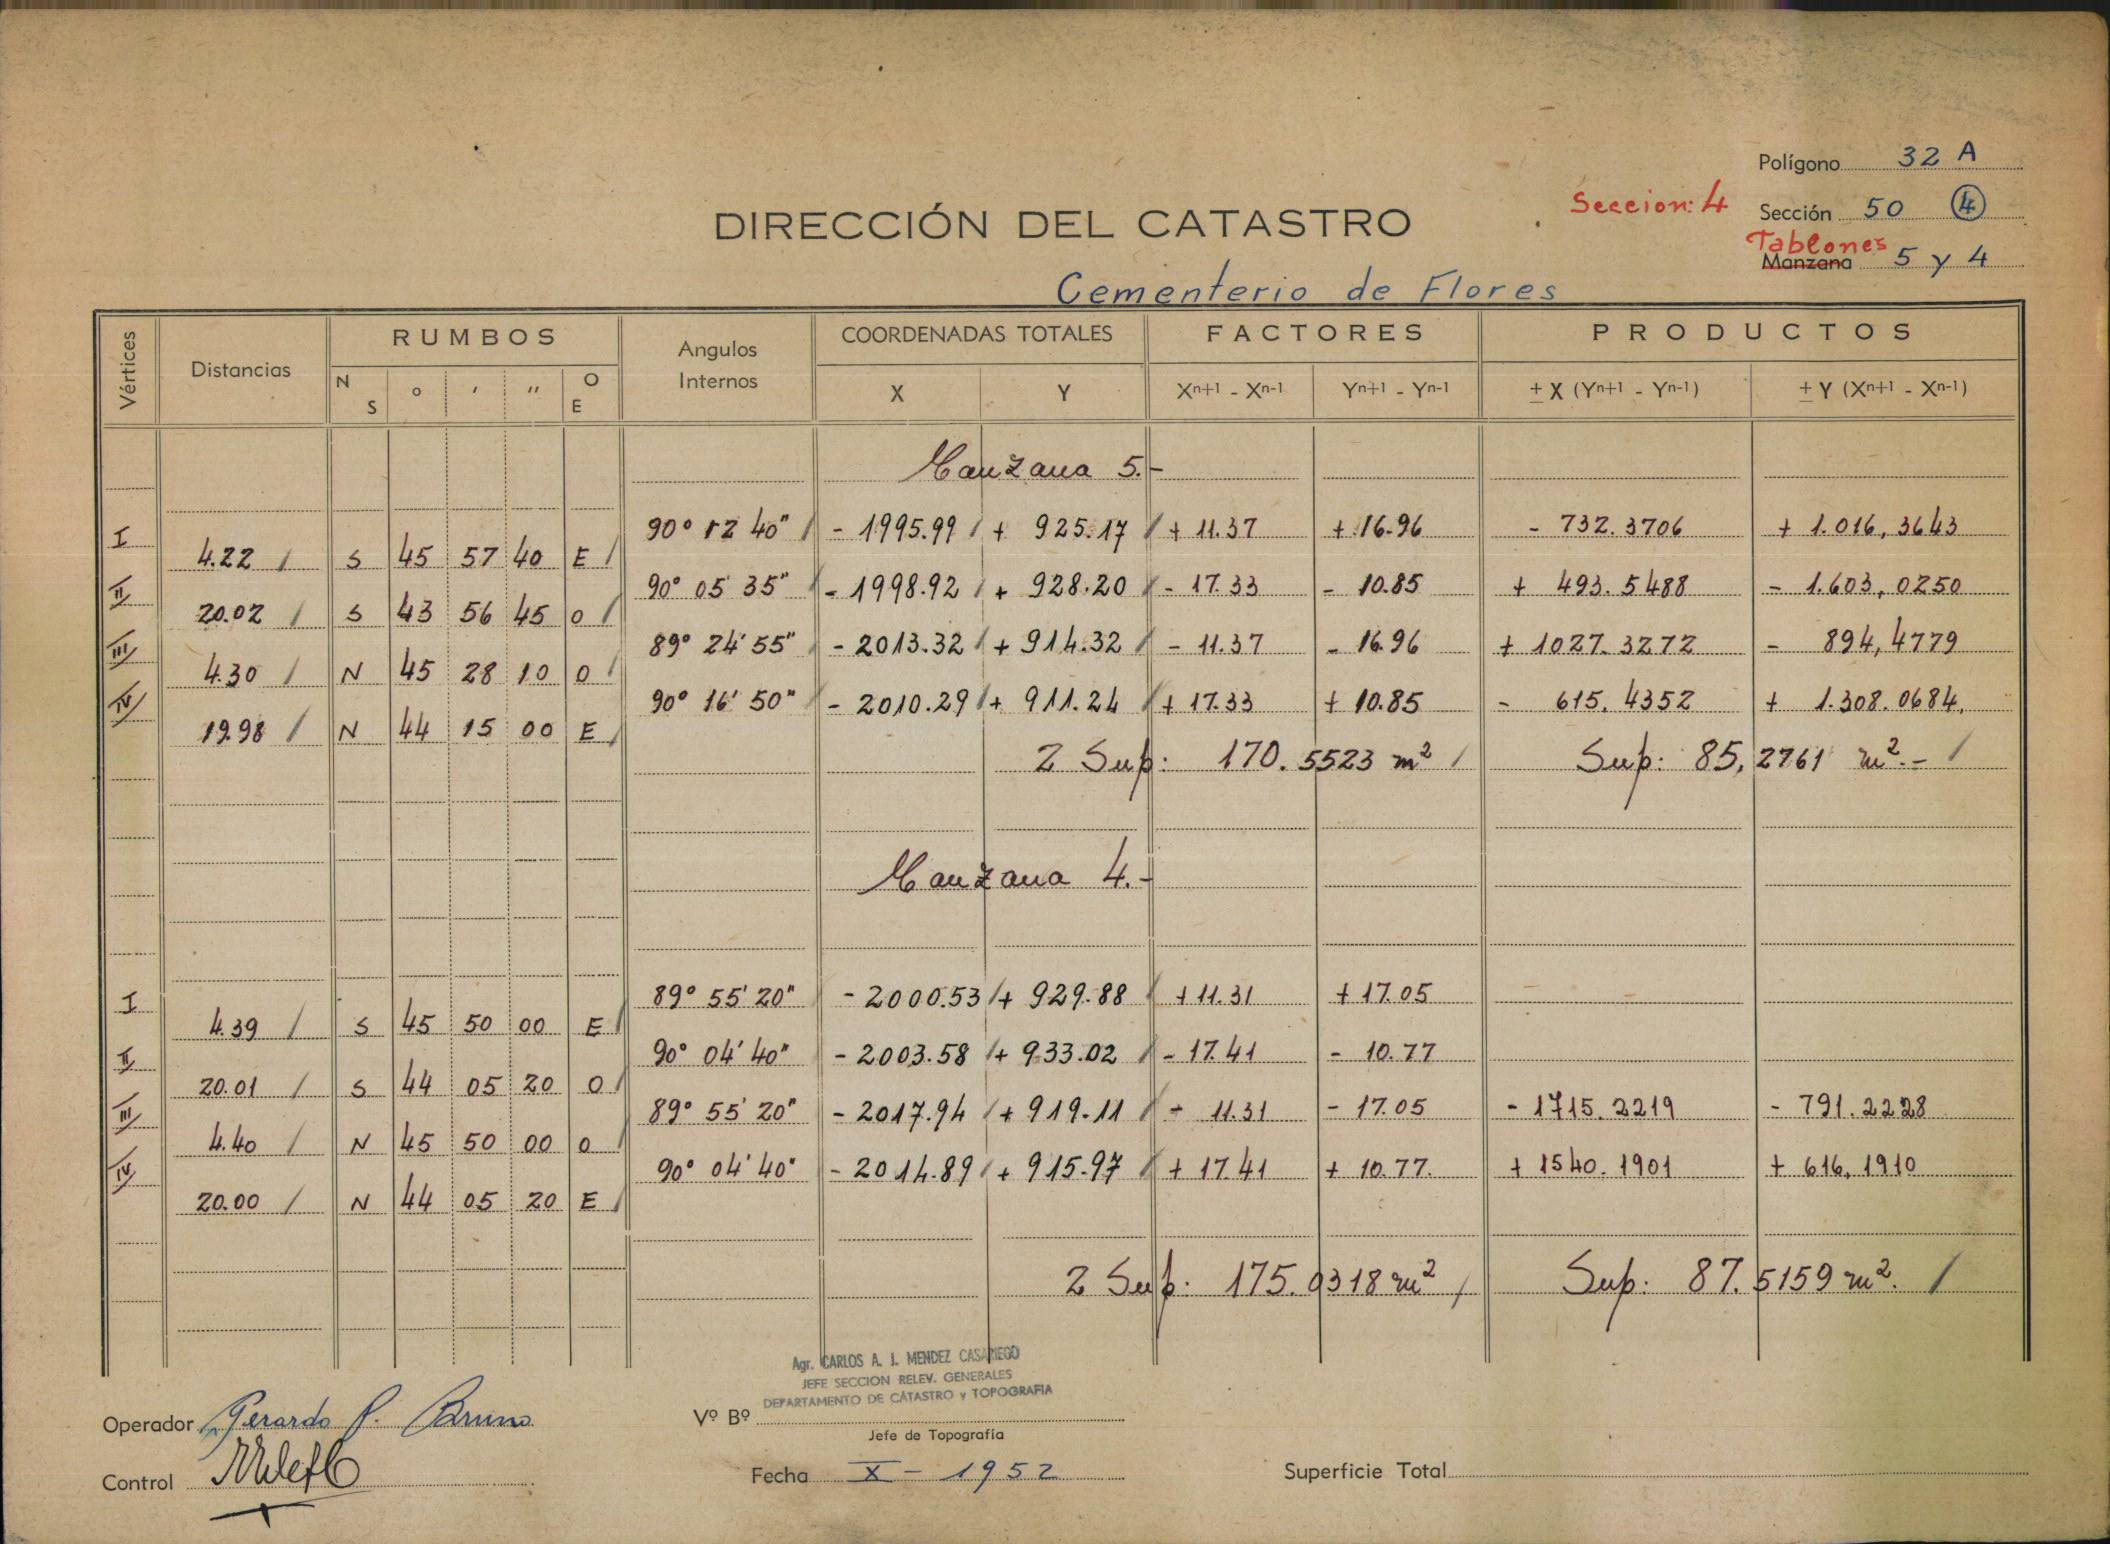 Polígono 32 A
Seccion: 4 Sección 50 4
DIRECCIÓN DEL CATASTRO
Tablones
Manzana 5 y 4
Cementerio de Flores
Vértices Distancias RUMBOS Angulos Internos COORDENADAS TOTALES FACTORES PRODUCTOS
N S ° ′ ″ O E X Y Xⁿ⁺¹ - Xⁿ⁻¹ Yⁿ⁺¹ - Yⁿ⁻¹ ± X (Yⁿ⁺¹ - Yⁿ⁻¹) ± Y (Xⁿ⁺¹ - Xⁿ⁻¹)
Manzana 5.-
I 90° 12' 40" - 1995.99 + 925.17 + 11.37 + 16.96 - 732.3706 + 1.016,3643
4.22 S 45 57 40 E
II 90° 05' 35" - 1998.92 + 928.20 - 17.33 - 10.85 + 493.5488 - 1.603,0250
20.02 S 43 56 45 O
III 89° 24' 55" - 2013.32 + 914.32 - 11.37 - 16.96 + 1027.3272 - 894,4779
4.30 N 45 28 10 O
IV 90° 16' 50" - 2010.29 + 911.24 + 17.33 + 10.85 - 615.4352 + 1.308.0684.
19.98 N 44 15 00 E
2 Sup: 170.5523 m² Sup: 85,2761 m².-
Manzana 4.-
I 89° 55' 20" - 2000.53 + 929.88 + 11.31 + 17.05
4.39 S 45 50 00 E
II 90° 04' 40" - 2003.58 + 933.02 - 17.41 - 10.77
20.01 S 44 05 20 O
III 89° 55' 20" - 2017.94 + 919.11 - 11.31 - 17.05 - 1715.2219 - 791.2228
4.40 N 45 50 00 O
IV 90° 04' 40" - 2014.89 + 915.97 + 17.41 + 10.77. + 1540.1901 + 616,1910
20.00 N 44 05 20 E
2 Sup: 175.0318 m² Sup: 87.5159 m².
Agr. CARLOS A. J. MENDEZ CASARIEGO
JEFE SECCION RELEV. GENERALES
DEPARTAMENTO DE CATASTRO y TOPOGRAFIA
Operador Gerardo P. Bruno Vº Bº
Jefe de Topografía
Control Fecha X - 1952 Superficie Total